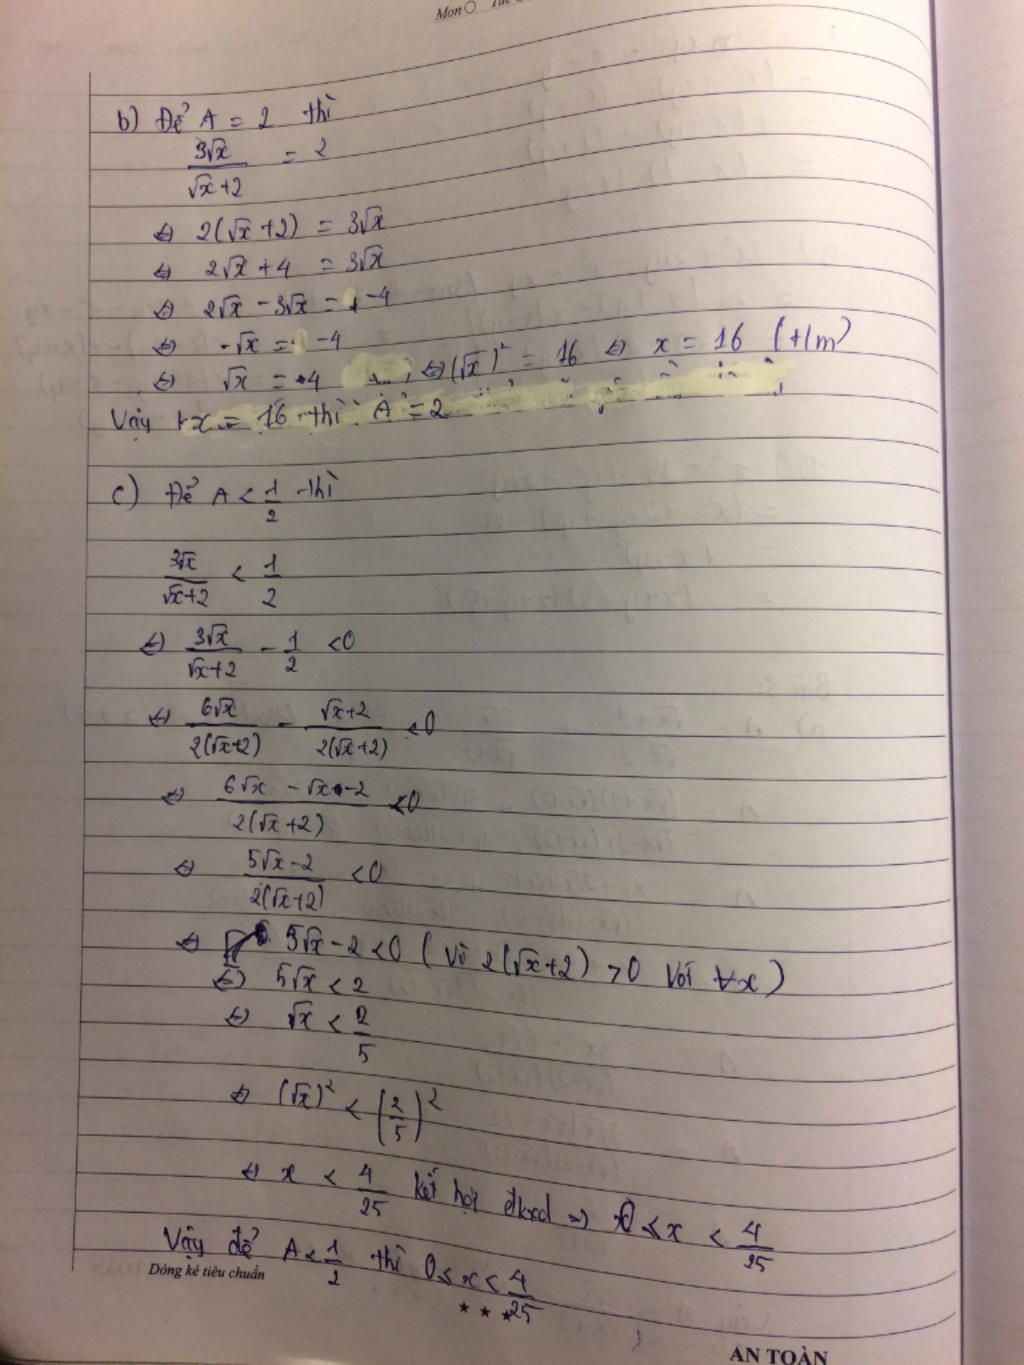 Mon
b) Để A = 2 thì
3√x / (√x+2) = 2
⇔ 2(√x+2) = 3√x
⇔ 2√x + 4 = 3√x
⇔ 2√x - 3√x = -4
⇔ -√x = -4
⇔ √x = 4 ⇔ (√x)² = 16 ⇔ x = 16 (t/m)
Vậy x = 16 thì A = 2
c) Để A < 1/2 thì
3√x / (√x+2) < 1/2
⇔ 3√x / (√x+2) - 1/2 < 0
⇔ 6√x / 2(√x+2) - (√x+2) / 2(√x+2) < 0
⇔ (6√x - √x - 2) / 2(√x+2) < 0
⇔ (5√x - 2) / 2(√x+2) < 0
⇔ 5√x - 2 < 0 (Vì 2(√x+2) > 0 Với ∀x)
⇔ 5√x < 2
⇔ √x < 2/5
⇔ (√x)² < (2/5)²
⇔ x < 4/25 kết hợp đkxđ ⇒ 0 ≤ x < 4/25
Vậy để A < 1/2 thì 0 ≤ x < 4/25
Dòng kẻ tiêu chuẩn
★ ★ ★
AN TOÀN